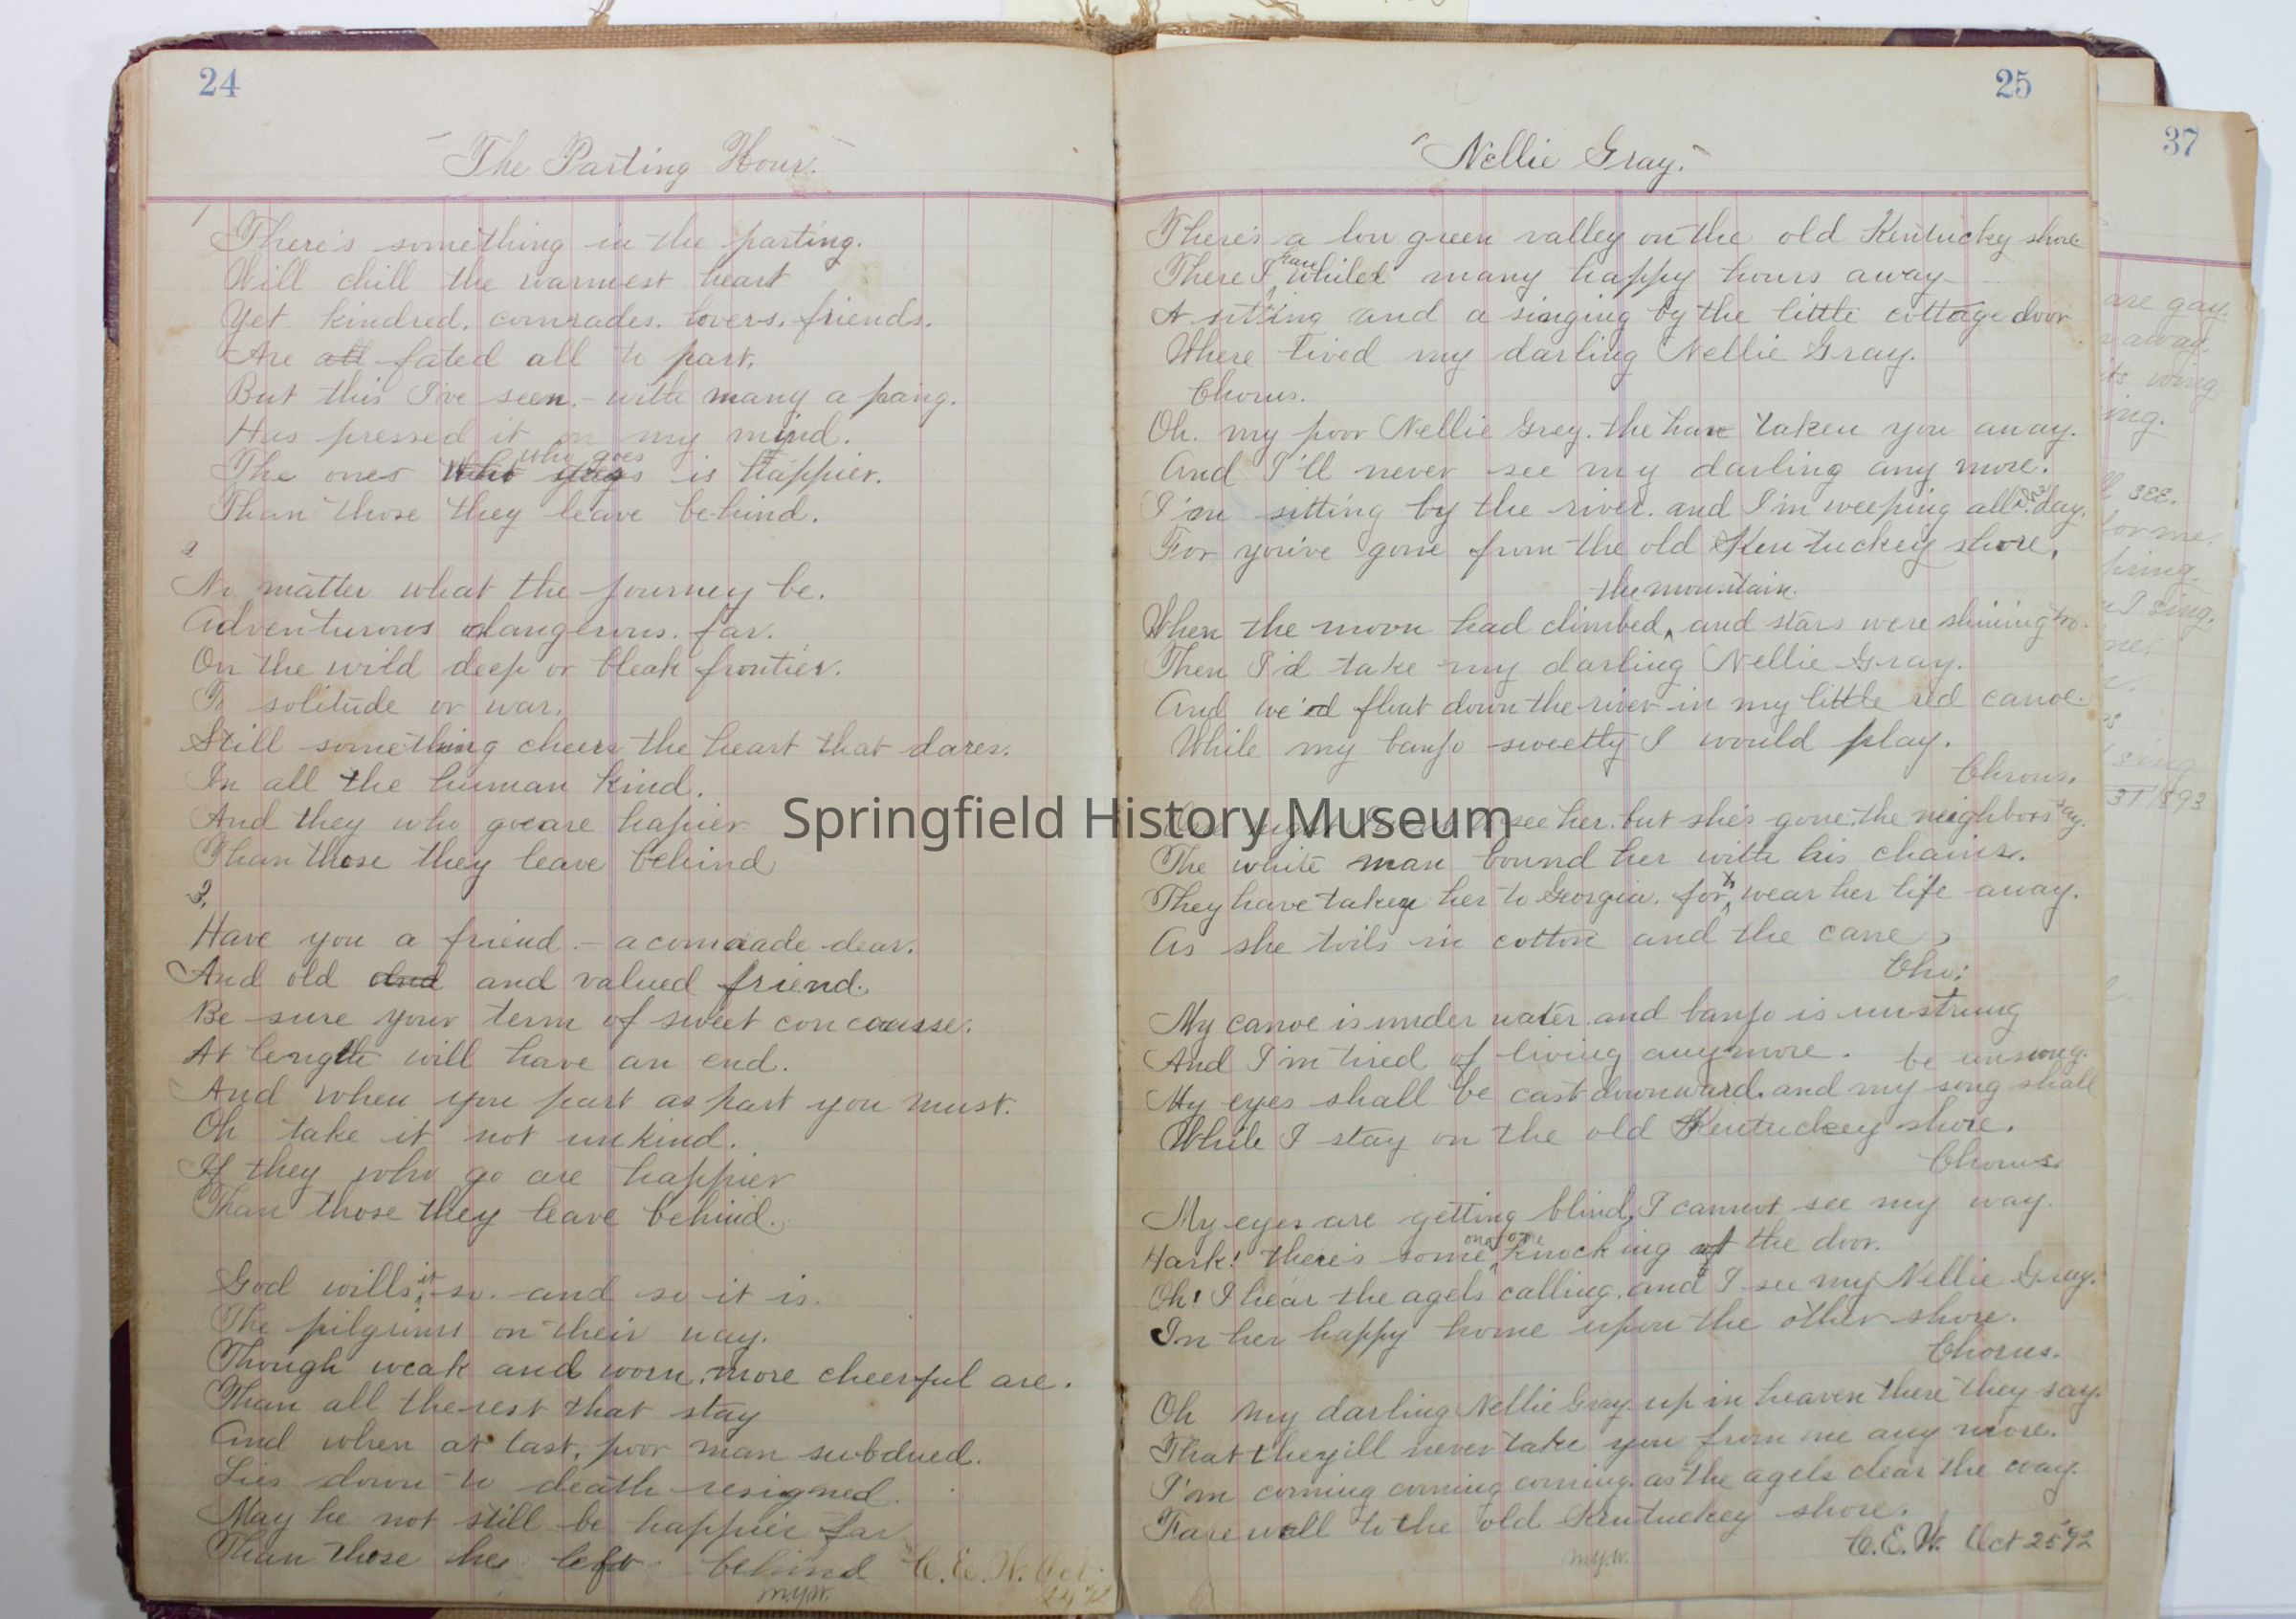 24
"The Parting Hour."
1
There's something in the parting.
Will chill the warmest heart
Yet kindred, comrades, lovers, friends.
Are all fated all to part.
But this I've seen.- with many a pang.
Has pressed it on my mind.
who goes
The ones who goes is happier.
Than those they leave behind.
2
No matter what the journey be.
Adventurous dangerous. far.
On the wild deep or bleak frontier.
To solitude or war.
Still something cheers the heart that dares.
In all the human kind.
And they who go are hapier
Than those they leave behind
3.
Have you a friend - a comrade dear.
And old and and valued friend.
Be sure your term of sweet concourse.
At length will have an end.
And when you part as part you must.
Oh take it not unkind.
If they who go are happier
Than those they leave behind.
God wills it so. and so it is.
The pilgrims on their way.
Though weak and worn. more cheerful are.
Than all the rest that stay
And when at last, poor man subdued.
Lies down to death resigned.
May he not still be happier far
Than those he left behind C. E. W. Oct.
m.y.w.
25
"Nellie Gray."
There's a low green valley on the old Kentucky shore
There I have whiled many happy hours away
A sitting and a singing by the little cottage door
Where lived my darling Nellie Gray.
Chorus.
Oh. my poor Nellie Grey. the have taken you away.
And I'll never see my darling any more.
I'm sitting by the river. and I'm weeping all the day.
For you've gone from the old Kentuckey shore.
the mountain.
When the moon had climbed, and stars were shining to.
Then I'd take my darling Nellie Gray.
And we'd float down the river in my little red canoe.
While my banjo sweetly I would play.
Chrous.
One night I went to see her. but she's gone. the neighbors say.
The white man bound her with his chains.
They have taken her to Georgia. for to wear her life away.
As she toils in cotton and the cane
Cho:
My canoe is under water. and banjo is unstrung
And I'm tired of living anymore.
be unsung.
My eyes shall be cast downward. and my song shall
While I stay on the old Kentuckey shore.
Chorus.
My eyes are getting blind, I cannot see my way.
Hark! there's some one knocking at the door.
Oh! I hear the agels calling. and I see my Nellie Gray.
In her happy home upon the other shore.
Chorus.
Oh my darling Nellie Gray up in heaven there they say.
That they'ill never take you from me any more.
I'm coming coming coming. as the agels clear the way.
Farewell to the old Kentuckey shore.
C. E. W. Oct 25 '92
m.y.w.
37
are gay.
away.
its wing
ing.
see.
for me.
I sing.
sing
31 1893
Springfield History Museum